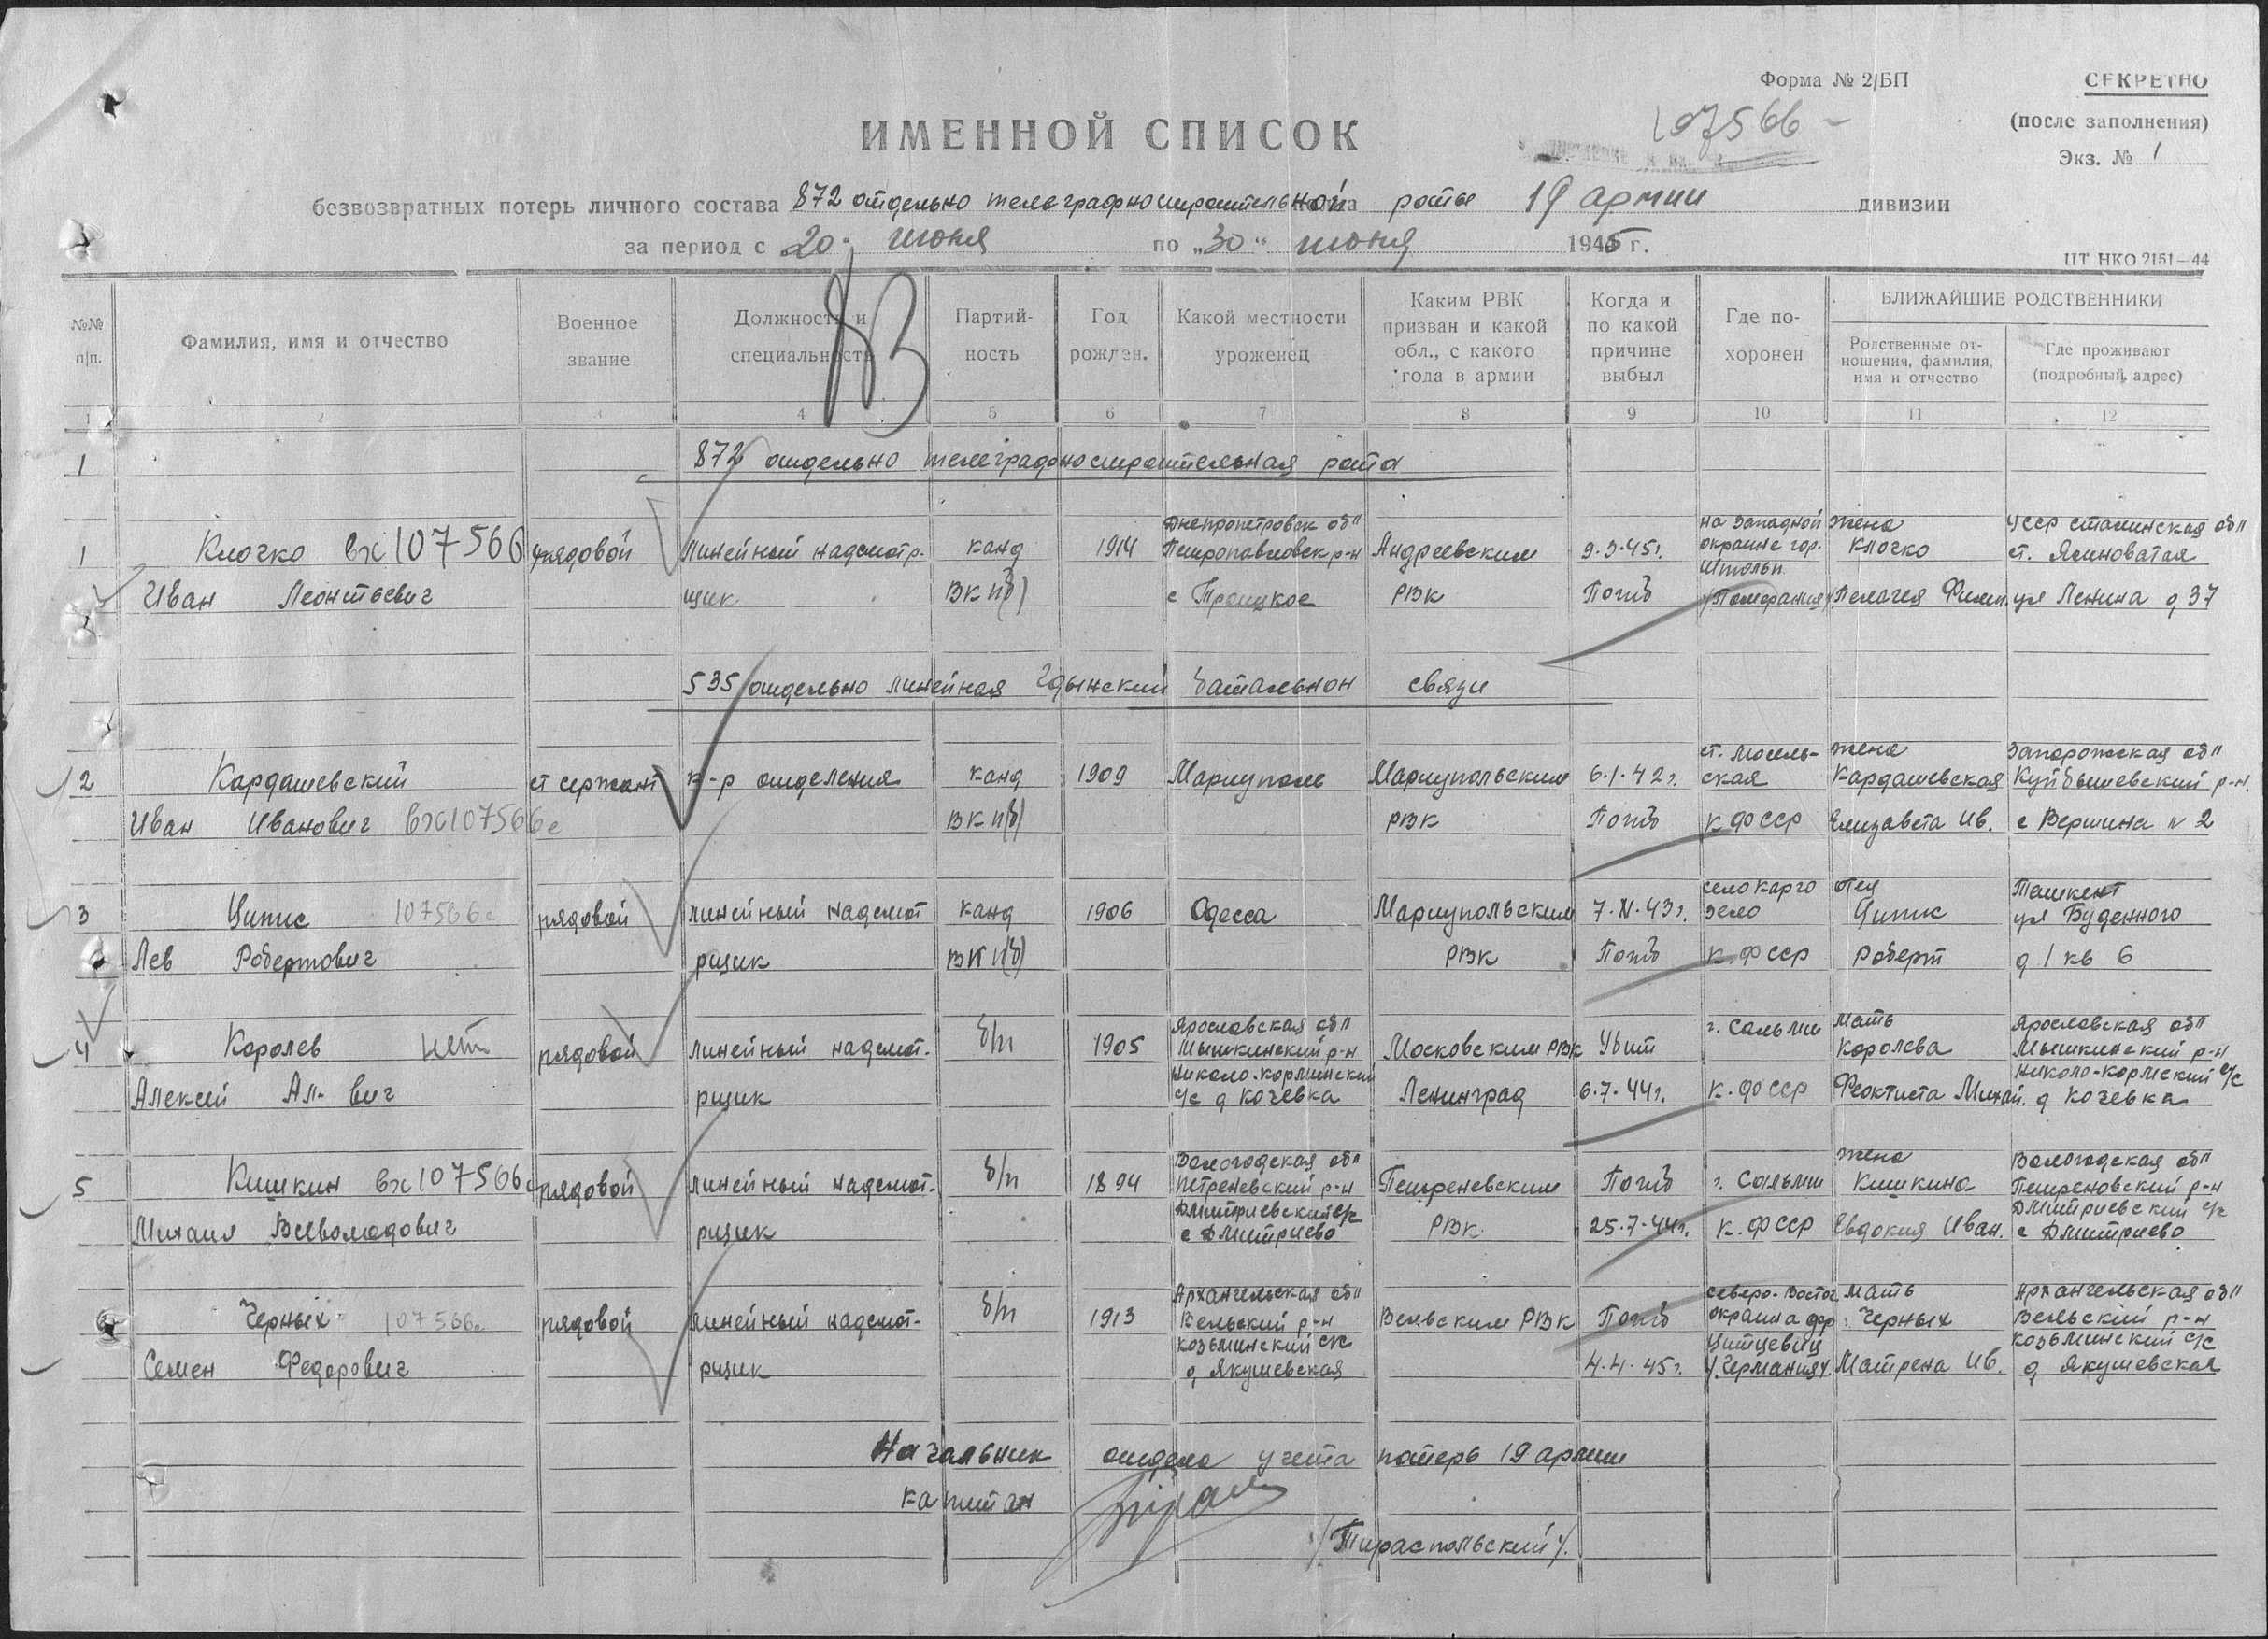 Форма № 2/БП
СЕКРЕТНО
107566
(после заполнения)
ИМЕННОЙ СПИСОК
Экз. № 1
безвозвратных потерь личного состава 872 отдельно телеграфностроительной роты 19 армии дивизии
за период с 20 июня по „30“ июня 1945 г.
ЦТ НКО 2151—44
№№ п/п.
Фамилия, имя и отчество
Военное звание
Должность и специальность
Партийность
Год рожден.
Какой местности уроженец
Каким РВК призван и какой обл., с какого года в армии
Когда и по какой причине выбыл
Где похоронен
БЛИЖАЙШИЕ РОДСТВЕННИКИ
Родственные отношения, фамилия, имя и отчество
Где проживают (подробный адрес)
1 2 3 4 5 6 7 8 9 10 11 12
1 872 отдельно телеграфностроительная рота
Днепропетровск обл на западной жена УССР Сталинская обл
1 Клочко вх107566 рядовой линейный надсмотр- канд 1914 Петропавловск р-н Андреевским 9.3.45г. окраине гор. Клочко ст. Ясиноватая
Штольп
Иван Леонтьевич щик ВКП(б) с Троицкое РВК Погиб /Померания/ Пелагея Филип. ул Ленина д 37
535 отдельно линейная Гдынский батальион связи
ст. Лоухская жена Запорожская обл
2 Кардашевский ст сержант к-р отделения канд 1909 Мариуполь Мариупольским 6.1.42г. Кардашевская Куйбышевский р-н.
Иван Иванович вх107566с ВКП(б) РВК Погиб К ФССР Елизавета Ив. с Вершина № 2
село Карго отец Ташкент
3 Ципис 107566с рядовой линейный надсмот канд 1906 Одесса Мариупольским 7.XI.43г. зело Ципис ул Буденного
Лев Робертович рщик ВКП(б) РВК Погиб К.ФССР Роберт д 1 кв 6
Ярославская обл г. Сальми мать Ярославская обл
4 Королев нет рядовой линейный надсмот- б/п 1905 Мышкинский р-н Московским РВК Убит Королева Мышкинский р-н
Николо-Корминский Николо-Кормский с/с
Алексей Ал-вич рщик с/с д Кочевка Ленинград 6.7.44г. К.ФССР Феоктиста Михай. д Кочевка
Вологодская обл жена Вологодская обл
5 Кишкин вх107566с рядовой линейный надсмот- б/п 1894 Петреневский р-н Петреневским Погиб г. Сальми Кишкина Петреновский р-н
Дмитриевский с/с Дмитриевский с/с
Михаил Всеволодович рщик с Дмитриево РВК 25.7.44г. К.ФССР Евдокия Иван. с Дмитриево
Архангельская обл северо-восточ мать Архангельская обл
6 Черных 107566с рядовой линейный надсмот- б/п 1913 Вельский р-н Вельским РВК Погиб окраина гор Черных Вельский р-н
Козьминский с/с Цитцевиц Козьминский с/с
Семен Федорович рщик д Якушевская 4.4.45г. /Германия/. Матрена Ив. д Якушевская
Начальник отдела учета потерь 19 армии
капитан
/Тираспольский/.